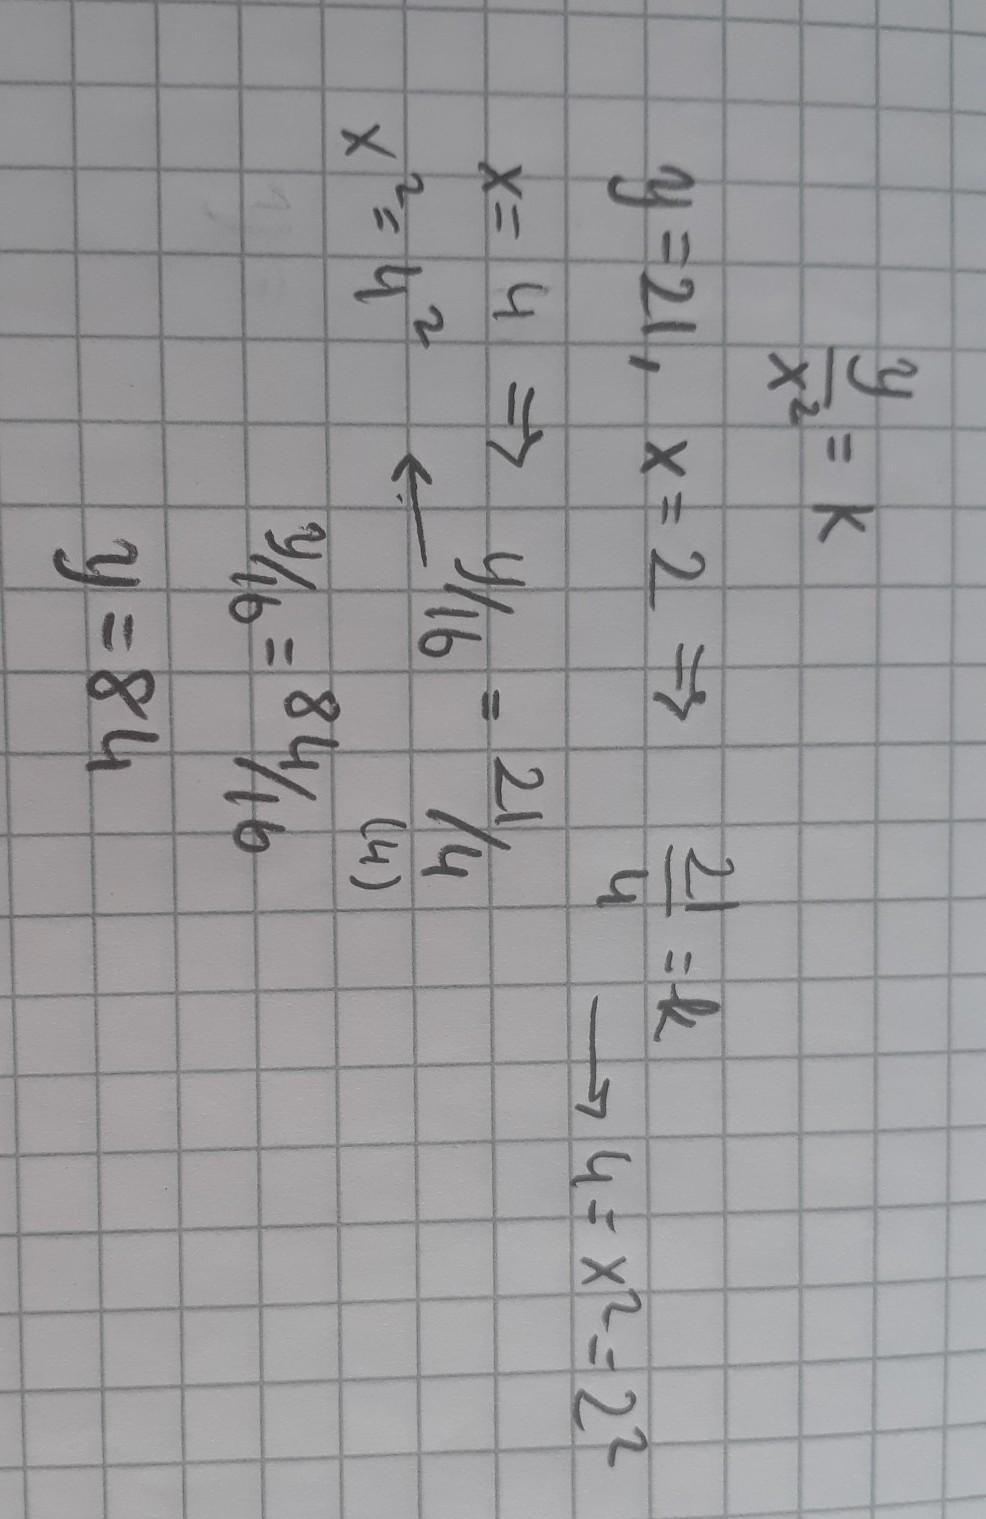 y/x² = k
y = 21, x = 2 ⇒ 21/4 = k → 4 = x² = 2²
x = 4 ⇒ y/16 = 21/4 (4)
x² = 4² ←
y/16 = 84/16
y = 84